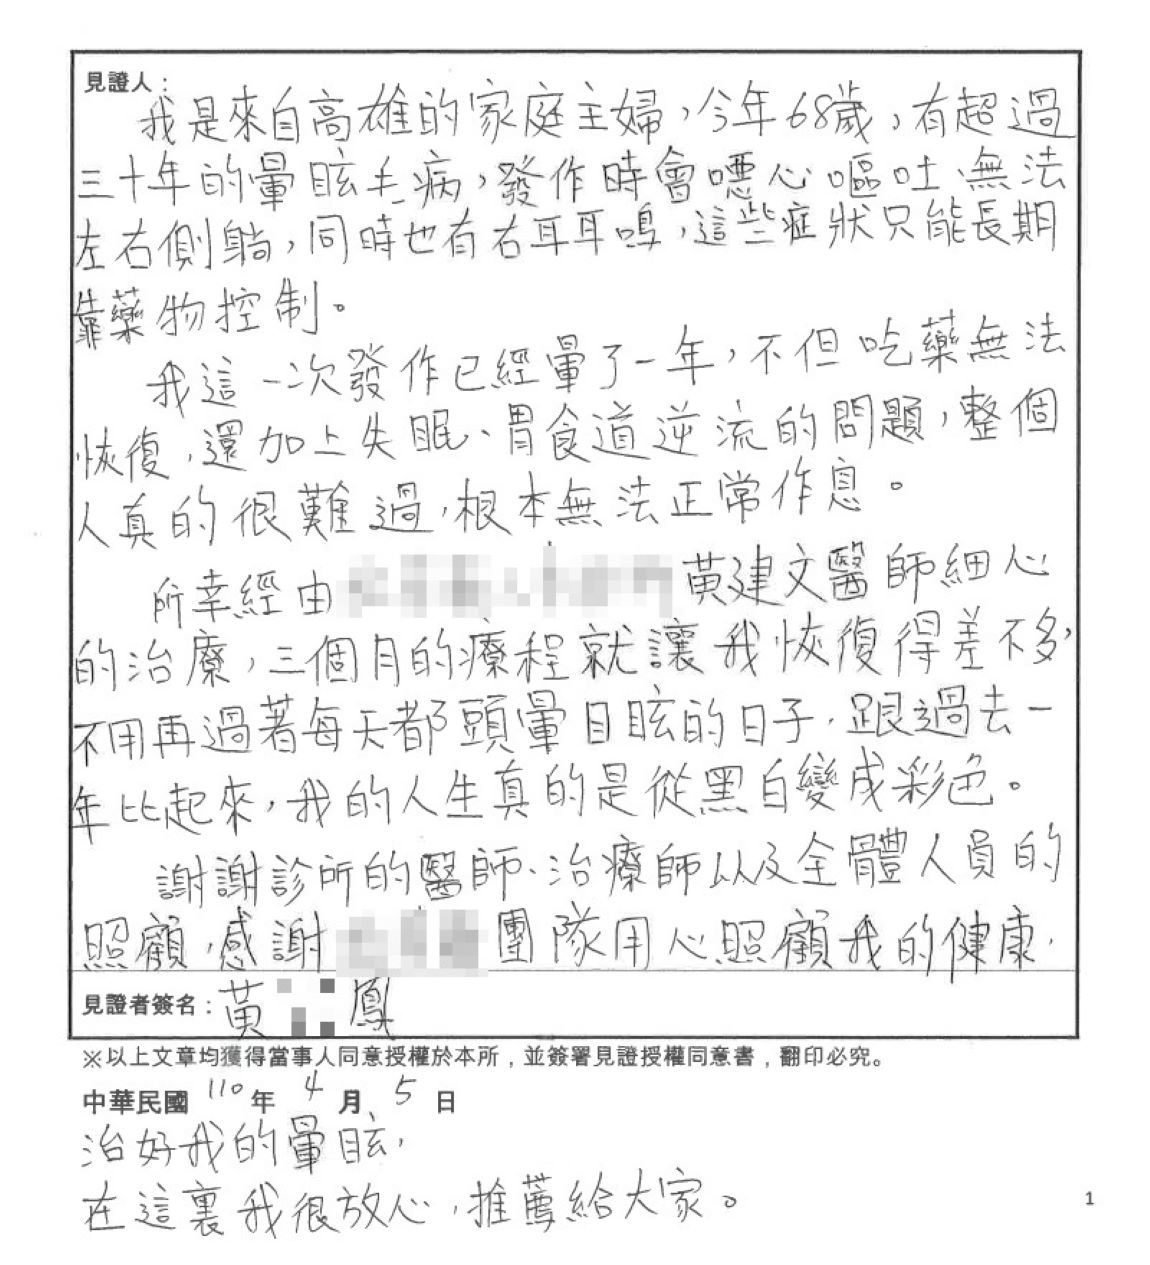 見證人：
我是來自高雄的家庭主婦，今年68歲，有超過
三十年的暈眩毛病，發作時會噁心嘔吐、無法
左右側躺，同時也有右耳耳鳴，這些症狀只能長期
靠藥物控制。
我這一次發作已經暈了一年，不但吃藥無法
恢復，還加上失眠、胃食道逆流的問題，整個
人真的很難過，根本無法正常作息。
所幸經由 黃建文醫師細心
的治療，三個月的療程就讓我恢復得差不多，
不用再過著每天都頭暈目眩的日子，跟過去一
年比起來，我的人生真的是從黑白變成彩色。
謝謝診所的醫師、治療師以及全體人員的
照顧，感謝 團隊用心照顧我的健康，
見證者簽名：黃 鳳
※以上文章均獲得當事人同意授權於本所，並簽署見證授權同意書，翻印必究。
中華民國 110 年 4 月 5 日
治好我的暈眩，
在這裏我很放心，推薦給大家。
1